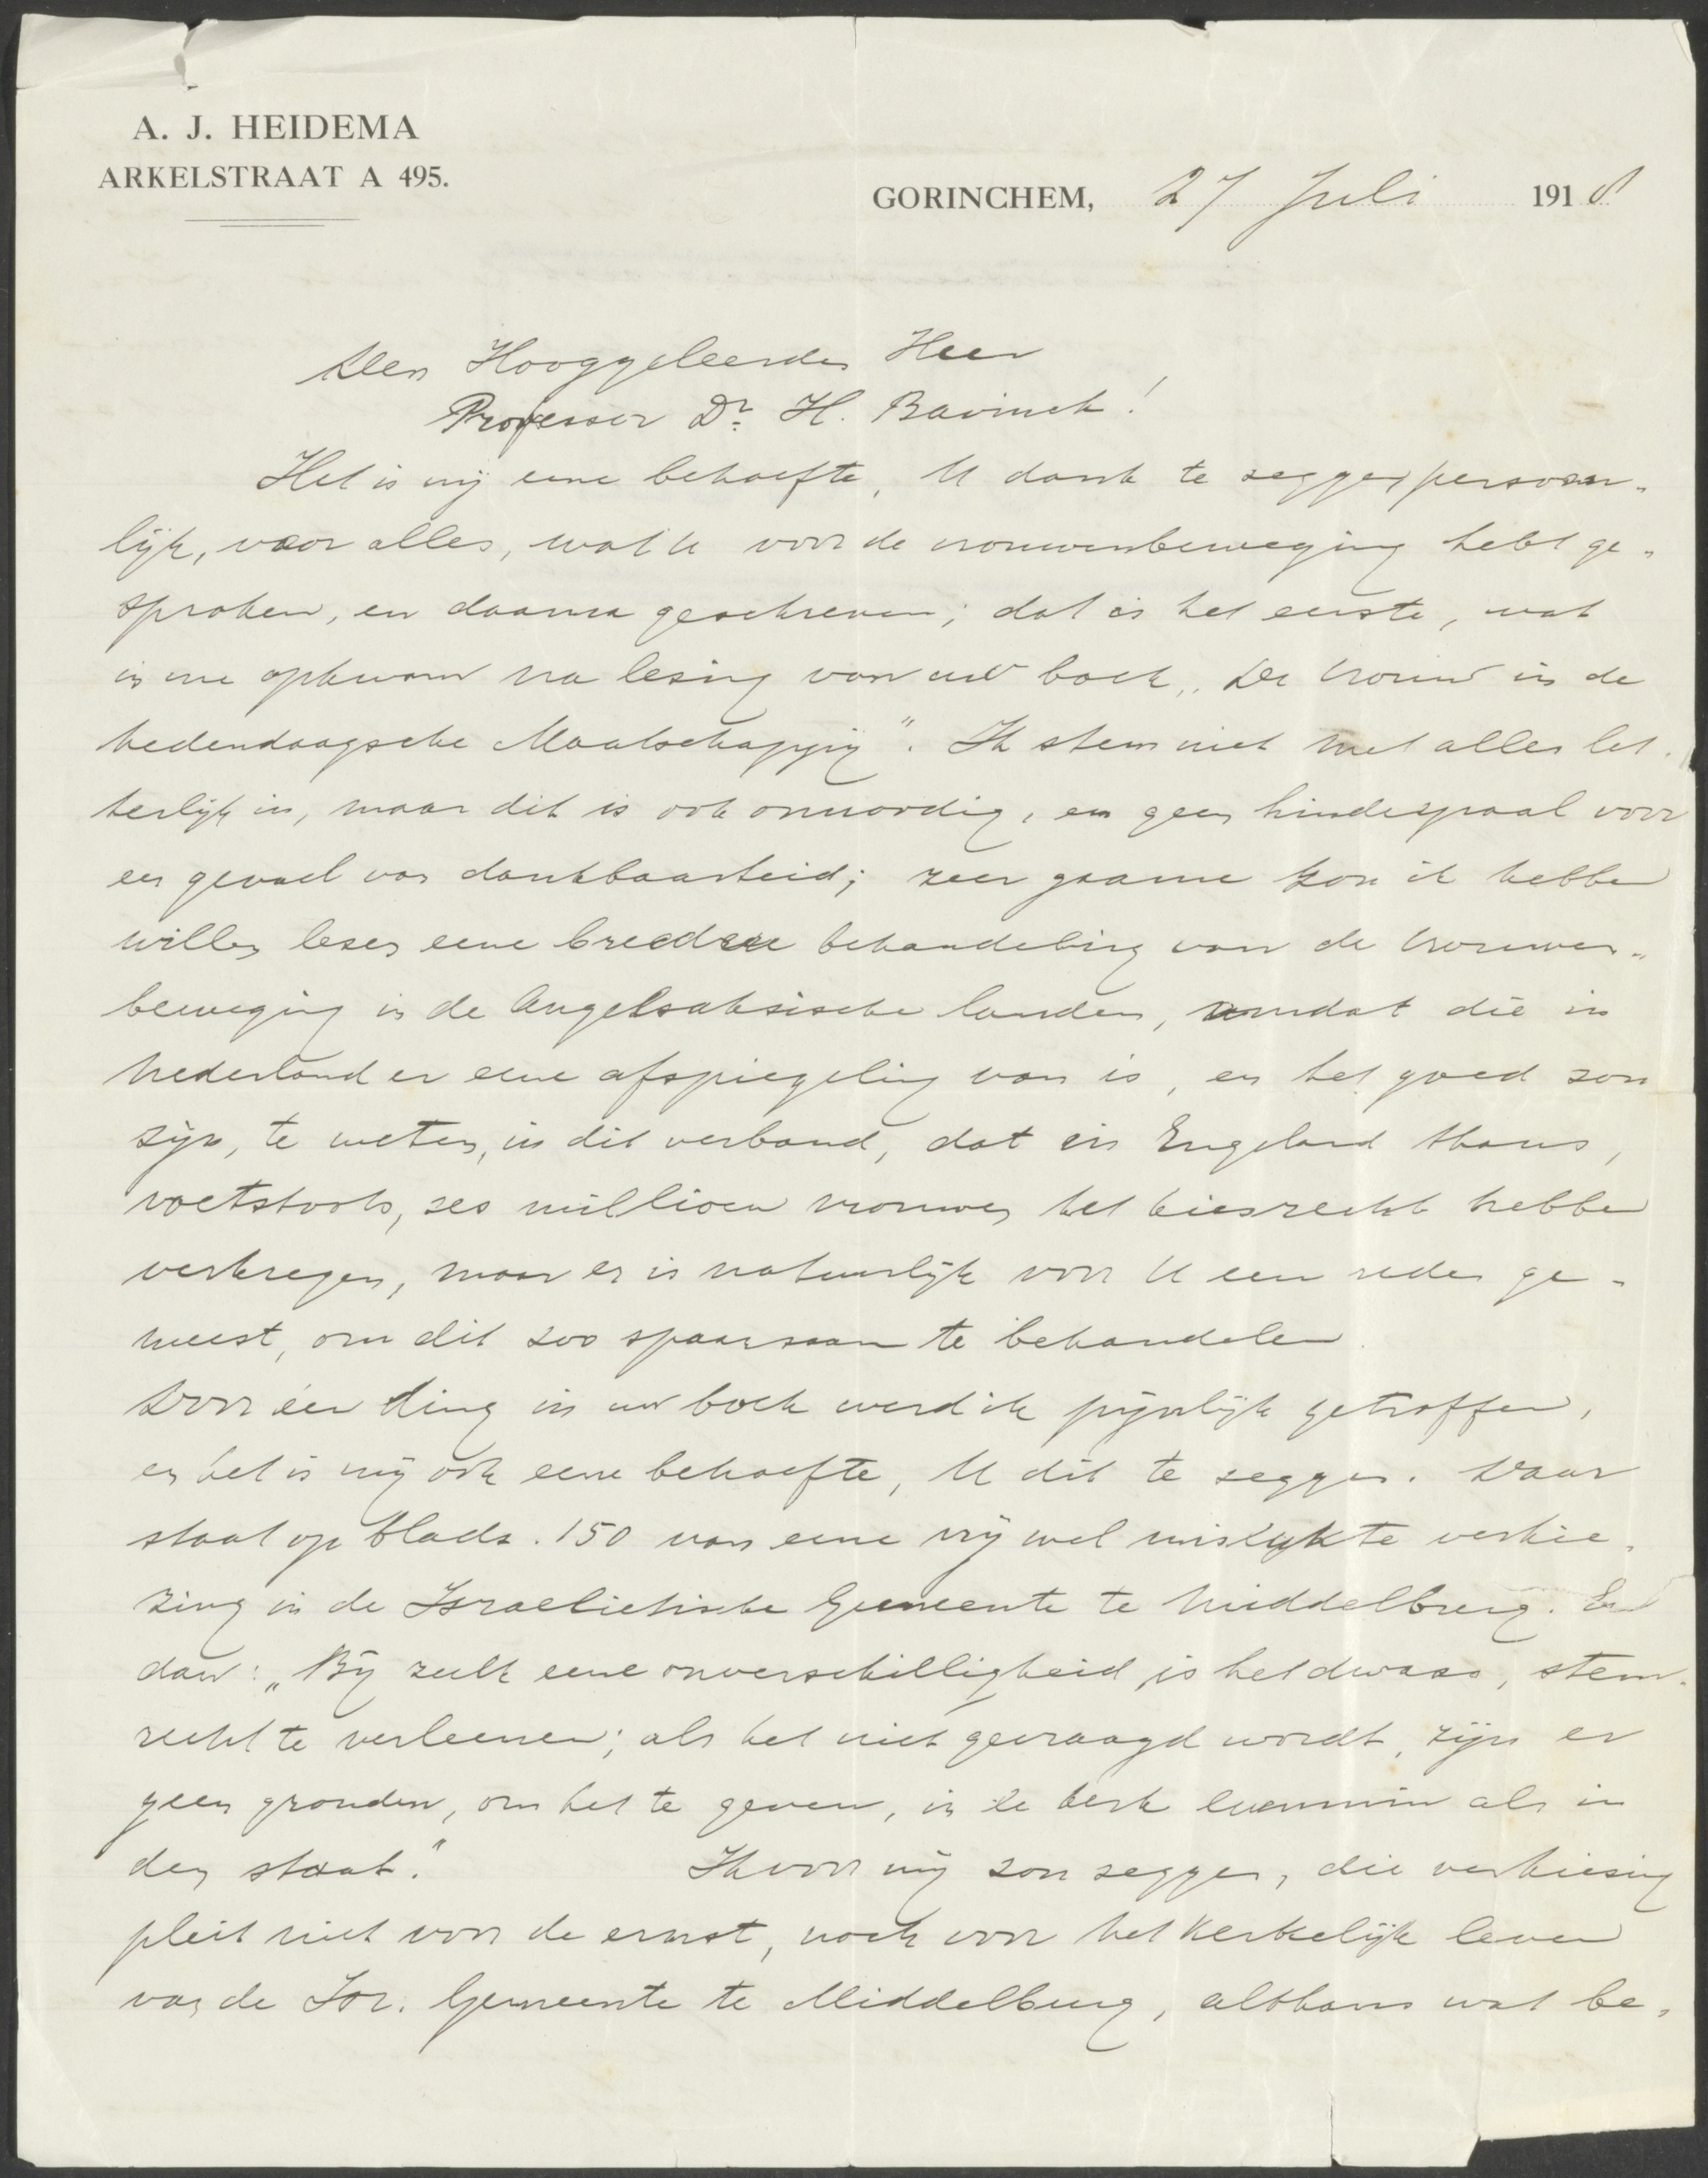 A. J. HEIDEMA
ARKELSTRAAT A 495.
GORINCHEM, 27 Juli 1918
Den Hooggeleerden Heer
Professor Dr. H. Bavinck!
Het is mij eene behoefte, U dank te zeggen persoon-
lijk, voor alles, wat U voor de vrouwenbeweging hebt ge-
sproken, en daarna geschreven; dat is het eerste, wat
in me opkwam na lezing van uw boek „De Vrouw in de
hedendaagsche Maatschappij". Ik stem niet met alles let-
terlijk in, maar dit is ook onnoodig, en geen hinderpaal voor
een gevoel van dankbaarheid; zeer gaarne zou ik hebben
willen lezen eene breedere behandeling van de vrouwen-
beweging in de Angelsaksische landen, omdat die in
Nederland er eene afspiegeling van is, en het goed zou
zijn, te weten, in dit verband, dat in Engeland thans,
voetstoots, zes millioen vrouwen het kiesrecht hebben
verkregen, maar er is natuurlijk voor U een reden ge-
weest, om dit zoo spaarzaam te behandelen.
Door één ding in uw boek werd ik pijnlijk getroffen,
en het is mij ook eene behoefte, U dit te zeggen. Daar
staat op bladz. 150 van eene vrij wel mislukte verkie-
zing in de Israelietische Gemeente te Middelburg. En
dan: „Bij zulk eene onverschilligheid is het dwaas, stem-
recht te verleenen; als het niet gevraagd wordt, zijn er
geen gronden, om het te geven, in de kerk evenmin als in
den staat." Ik voor mij zou zeggen, die verkiezing
pleit niet voor de ernst, noch voor het kerkelijk leven
van de Isr. Gemeente te Middelburg, althans wat be-